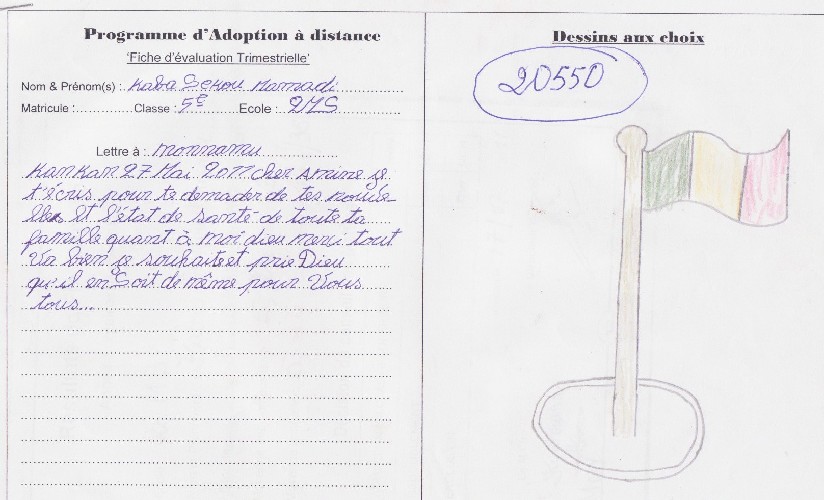 Programme d'Adoption à distance
'Fiche d'évaluation Trimestrielle'
Nom & Prénom(s) : Kaba Sekou Mamadi
Matricule : Classe : 5e Ecole : 2MS
Lettre à : monnamu
Kankan 27 Mai 2011 cher Amine je
t'écris pour te demader de tes nouve
lles Et l'état de santé de toute ta
famille quant à moi dieu merci tout
va bien je souhaite et prie Dieu
qu'il en Soit de même pour Vous
tous...
Dessins aux choix
20550